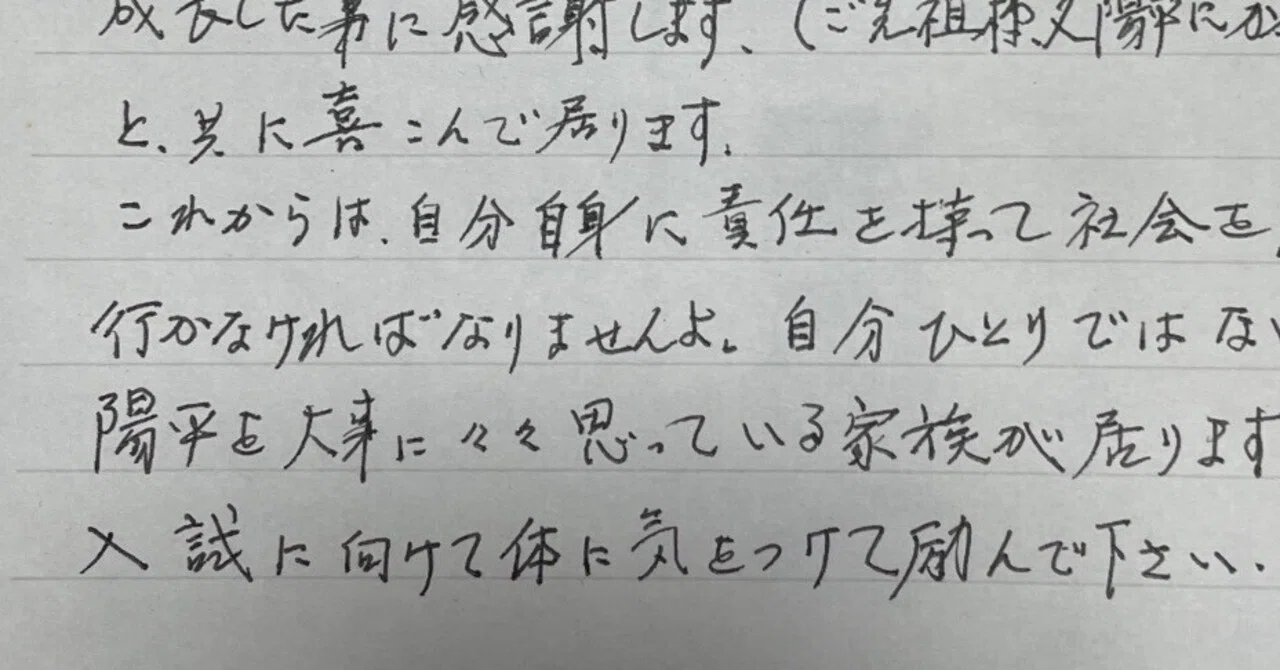 成長した事に感謝します、(ご先祖様、又陽平にか
と、共に喜こんで居ります。
これからは、自分自身に責任を持って社会を
行かなければなりませんよ。自分ひとりではない
陽平を大事に々々思っている家族が居ります
入試に向けて体に気をつけて励んで下さい.